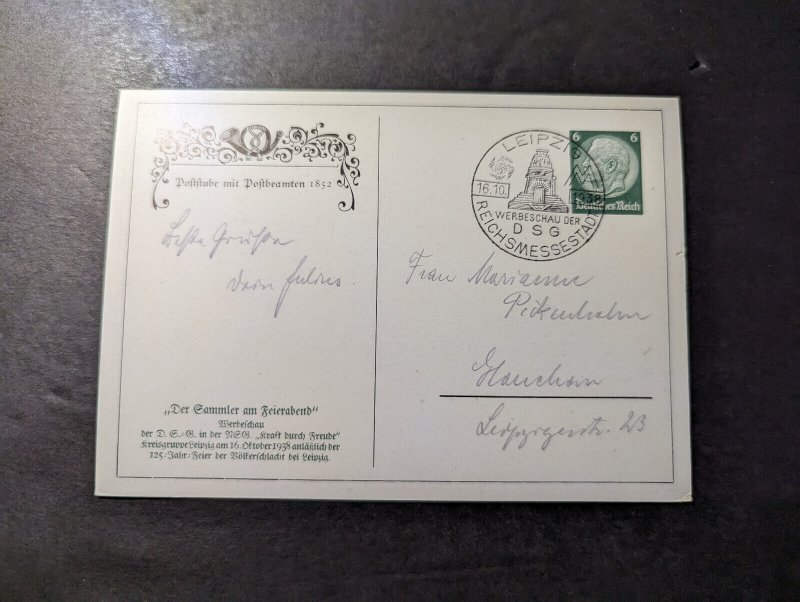 Poststube mit Postbeamten 1852
Beste Grüße
Dein Julius.
„Der Sammler am Feierabend"
Werbeschau
der D. S.-G. in der NSG. „Kraft durch Freude"
Kreisgruppe Leipzig am 16. Oktober 1938 anläßlich der
125-Jahr-Feier der Völkerschlacht bei Leipzig.
LEIPZIG
16.10. 1938
WERBESCHAU DER
DSG
REICHSMESSESTADT
6 6
Deutsches Reich
Frau Marianne
Pickenhahn
Glauchau
Leipzigerstr. 23